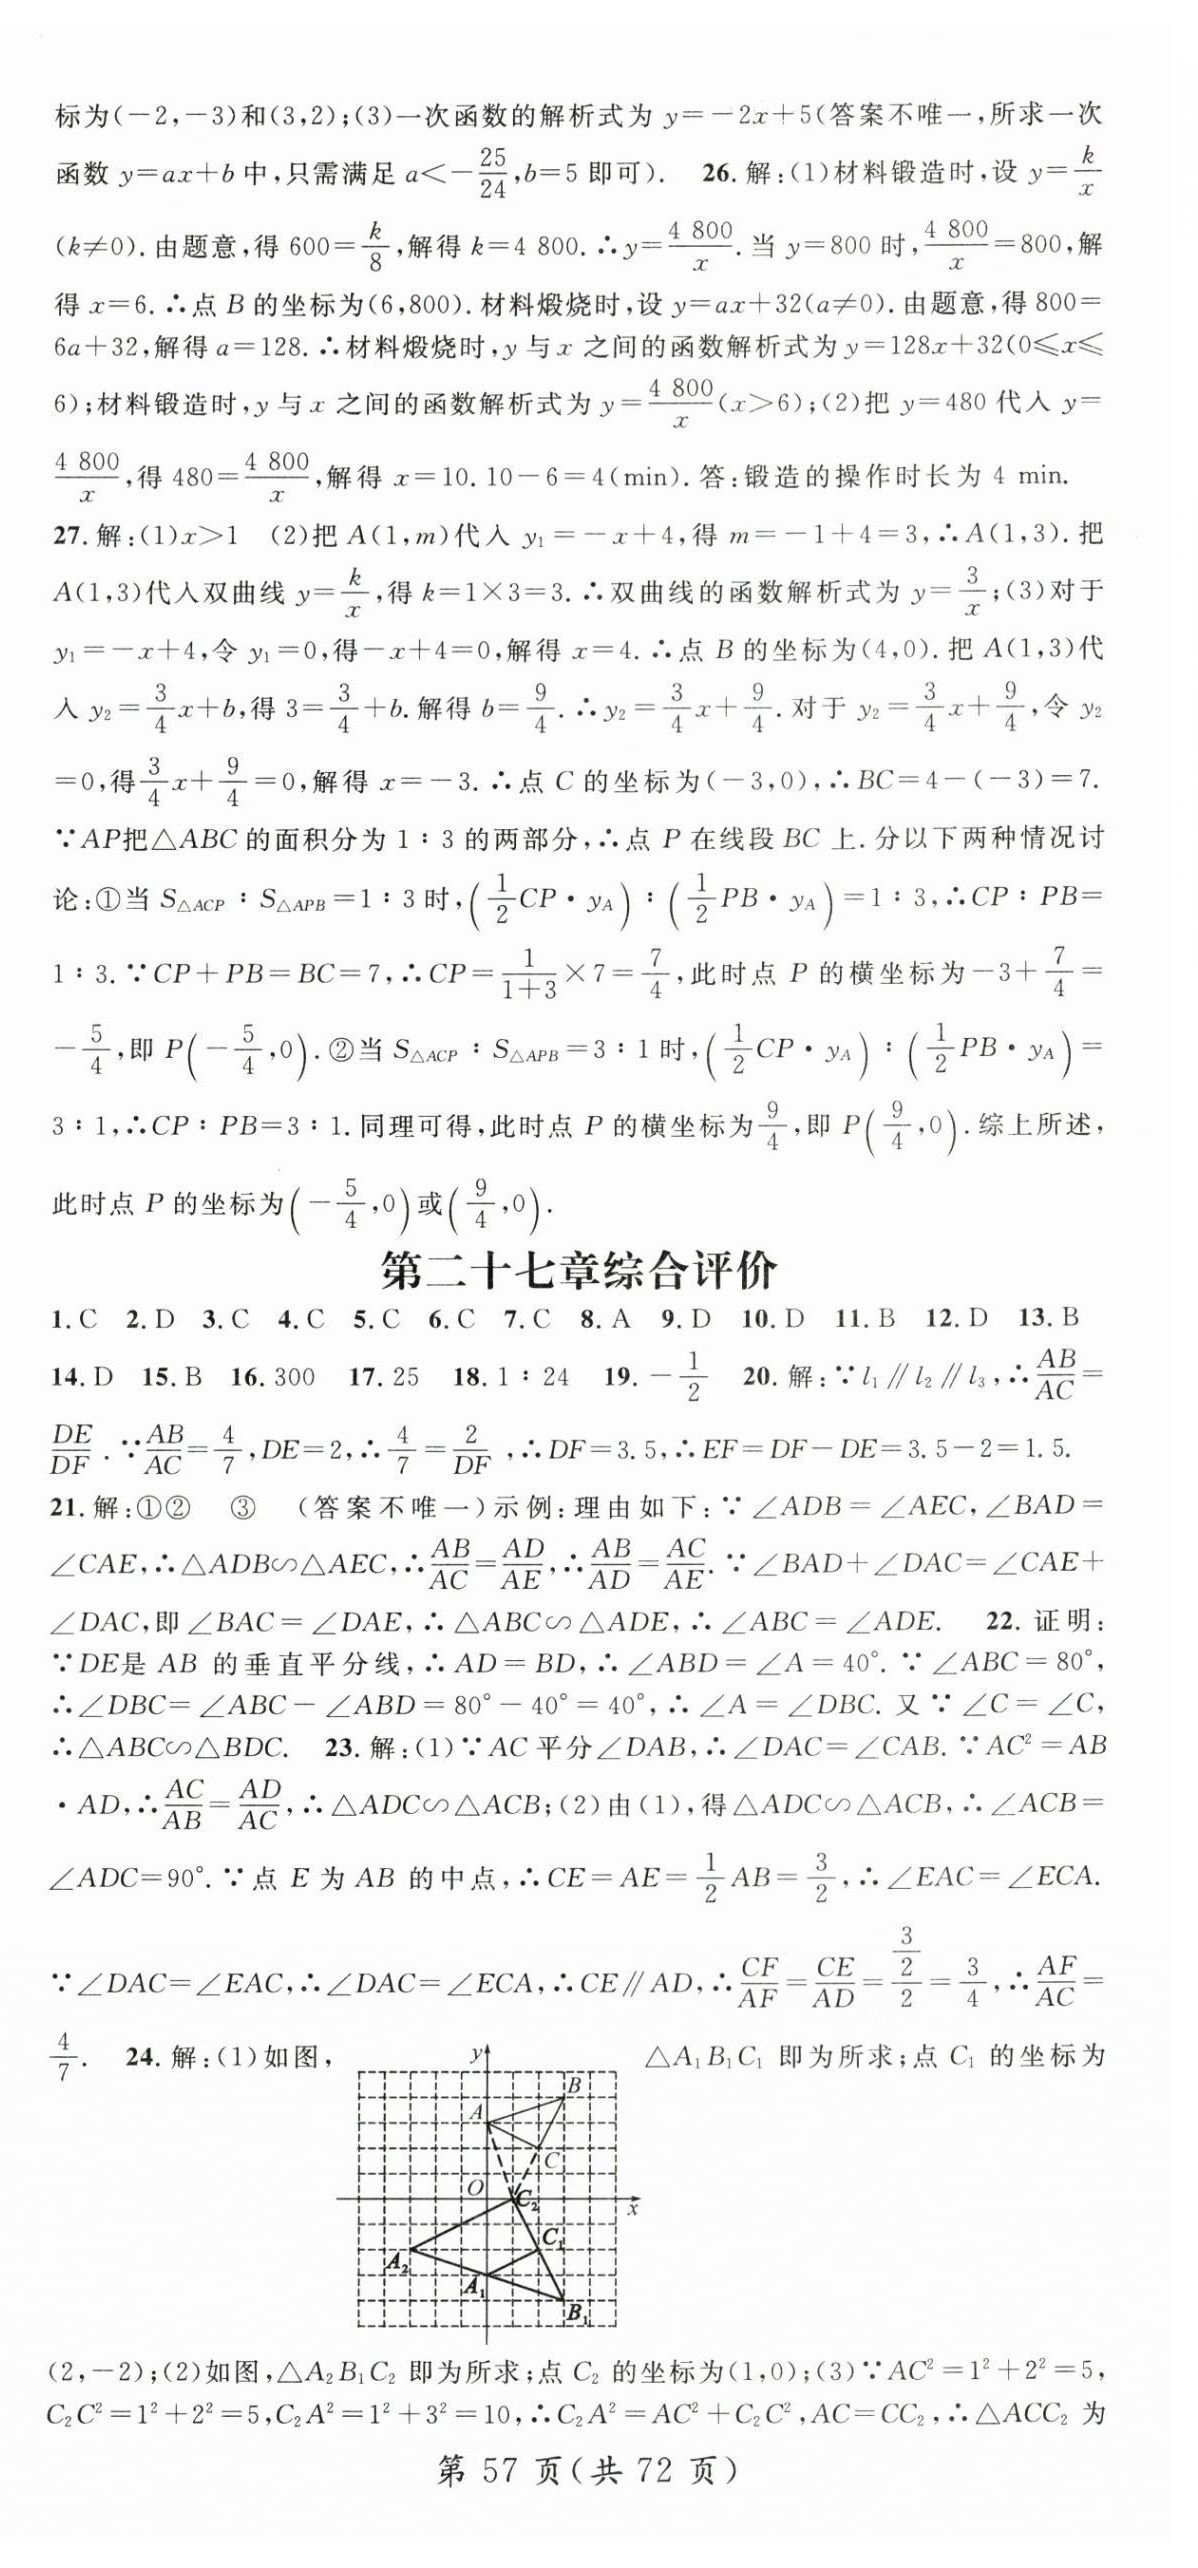 标为(－2,－3)和(3,2);(3)一次函数的解析式为 y=－2x+5(答案不唯一,所求一次
函数 y=ax+b 中,只需满足 a<－25/24,b=5 即可). 26.解:(1)材料锻造时,设 y=k/x
(k≠0).由题意,得 600=k/8,解得 k=4 800.∴y=4 800/x.当 y=800 时,4 800/x=800,解
得 x=6.∴点 B 的坐标为(6,800).材料煅烧时,设 y=ax+32(a≠0).由题意,得 800=
6a+32,解得 a=128.∴材料煅烧时,y 与 x 之间的函数解析式为 y=128x+32(0≤x≤
6);材料锻造时,y 与 x 之间的函数解析式为 y=4 800/x(x>6);(2)把 y=480 代入 y=
4 800/x,得 480=4 800/x,解得 x=10.10－6=4(min).答:锻造的操作时长为 4 min.
27.解:(1)x>1 (2)把 A(1,m)代入 y₁=－x+4,得 m=－1+4=3,∴A(1,3).把
A(1,3)代入双曲线 y=k/x,得 k=1×3=3.∴双曲线的函数解析式为 y=3/x;(3)对于
y₁=－x+4,令 y₁=0,得－x+4=0,解得 x=4.∴点 B 的坐标为(4,0).把 A(1,3)代
入 y₂=3/4x+b,得 3=3/4+b.解得 b=9/4.∴y₂=3/4x+9/4.对于 y₂=3/4x+9/4,令 y₂
=0,得3/4x+9/4=0,解得 x=－3.∴点 C 的坐标为(－3,0),∴BC=4－(－3)=7.
∵AP把△ABC 的面积分为 1∶3 的两部分,∴点 P 在线段 BC 上.分以下两种情况讨
论:①当 S△ACP∶S△APB=1∶3 时,(1/2CP·yA)∶(1/2PB·yA)=1∶3,∴CP∶PB=
1∶3.∵CP+PB=BC=7,∴CP=1/(1+3)×7=7/4,此时点 P 的横坐标为－3+7/4=
－5/4,即 P(－5/4,0).②当 S△ACP∶S△APB=3∶1 时,(1/2CP·yA)∶(1/2PB·yA)=
3∶1,∴CP∶PB=3∶1.同理可得,此时点 P 的横坐标为9/4,即 P(9/4,0).综上所述,
此时点 P 的坐标为(－5/4,0)或(9/4,0).
第二十七章综合评价
1.C 2.D 3.C 4.C 5.C 6.C 7.C 8.A 9.D 10.D 11.B 12.D 13.B
14.D 15.B 16.300 17.25 18.1∶24 19.－1/2 20.解:∵l₁∥l₂∥l₃,∴AB/AC=
DE/DF.∵AB/AC=4/7,DE=2,∴4/7=2/DF,∴DF=3.5,∴EF=DF－DE=3.5－2=1.5.
21.解:①② ③ (答案不唯一)示例:理由如下:∵∠ADB=∠AEC,∠BAD=
∠CAE,∴△ADB∽△AEC,∴AB/AC=AD/AE,∴AB/AD=AC/AE.∵∠BAD+∠DAC=∠CAE+
∠DAC,即∠BAC=∠DAE,∴△ABC∽△ADE,∴∠ABC=∠ADE. 22.证明:
∵DE是 AB 的垂直平分线,∴AD=BD,∴∠ABD=∠A=40°.∵∠ABC=80°,
∴∠DBC=∠ABC－∠ABD=80°－40°=40°,∴∠A=∠DBC.又∵∠C=∠C,
∴△ABC∽△BDC. 23.解:(1)∵AC 平分∠DAB,∴∠DAC=∠CAB.∵AC²=AB
·AD,∴AC/AB=AD/AC,∴△ADC∽△ACB;(2)由(1),得△ADC∽△ACB,∴∠ACB=
∠ADC=90°.∵点 E 为 AB 的中点,∴CE=AE=1/2AB=3/2,∴∠EAC=∠ECA.
∵∠DAC=∠EAC,∴∠DAC=∠ECA,∴CE∥AD,∴CF/AF=CE/AD=(3/2)/2=3/4,∴AF/AC=
4/7. 24.解:(1)如图, △A₁B₁C₁ 即为所求;点 C₁ 的坐标为
y
B
A
C
O
C₂
x
C₁
A₂
A₁
B₁
(2,－2);(2)如图,△A₂B₁C₂ 即为所求;点 C₂ 的坐标为(1,0);(3)∵AC²=1²+2²=5,
C₂C²=1²+2²=5,C₂A²=1²+3²=10,∴C₂A²=AC²+C₂C²,AC=CC₂,∴△ACC₂ 为
第 57 页(共 72 页)